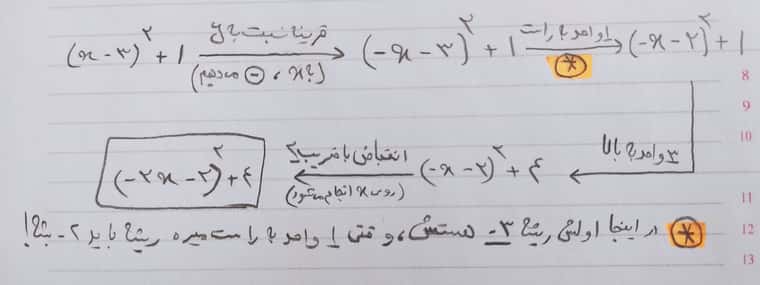 (x - ۳)^۲ + 1 قرینه نسبت به y (به x، ⊖ میدهیم) → (-x - ۳)^۲ + 1 ۱ واحد به راست → (-x - ۲)^۲ + 1
8
9
10
۳ واحد به بالا ← (-x - ۲)^۲ + ۴ انقباض با ضریب ۲ (روی x انجام میشود) ← (-۲x - ۲)^۲ + ۴
11
* در اینجا اولش ریشه ۳- هستش، وقتی ۱ واحد به راست میره ریشه باید ۲- بشه!
12
13